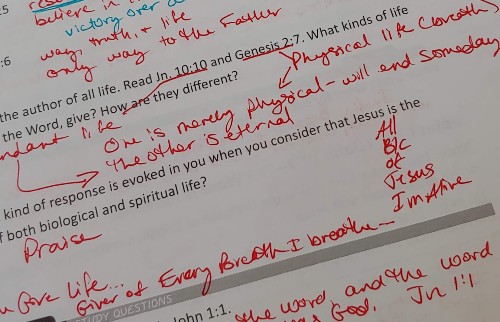 believe in
victory over
:6
way, truth, & life
only way to the Father
the author of all life. Read Jn. 10:10 and Genesis 2:7. What kinds of life
Physical life (breath)
the Word, give? How are they different?
ndant life
One is merely physical - will end someday
the other is eternal
kind of response is evoked in you when you consider that Jesus is the
f both biological and spiritual life?
Praise
All
B/c
of
Jesus
I'm Alive
Gave life...
Giver of Every Breath I breathe
UDY QUESTIONS
John 1:1.
the word, and the word
God. Jn 1:1